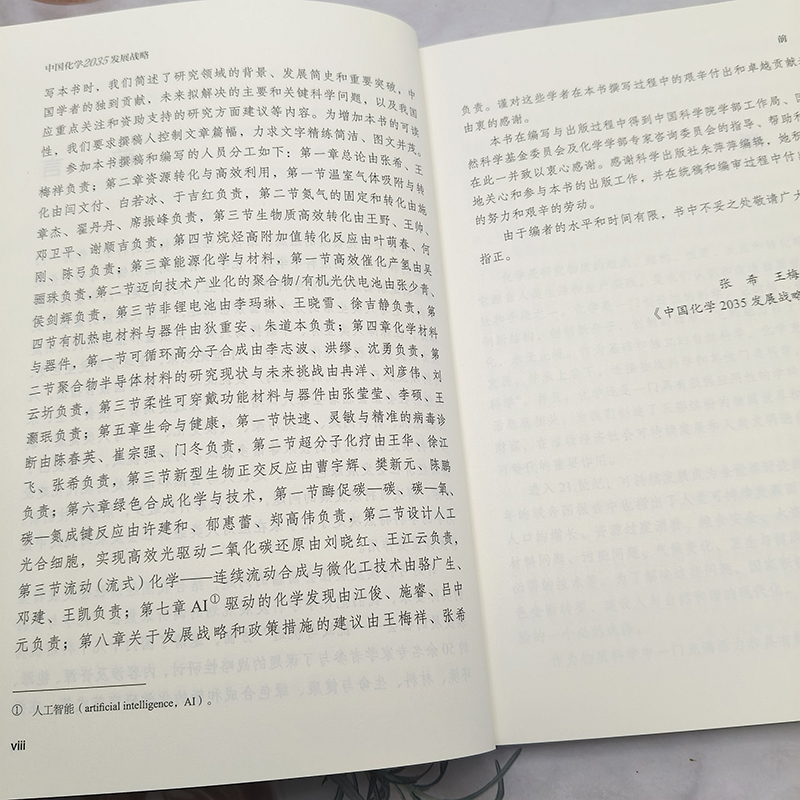 中国化学2035发展战略
写本书时，我们简述了研究领域的背景、发展简史和重要突破，中
国学者的独到贡献，未来拟解决的主要和关键科学问题，以及我国
应重点关注和资助支持的研究方面建议等内容。为增加本书的可读
性，我们要求撰稿人控制文章篇幅，力求文字精练简洁、图文并茂。
参加本书撰稿和编写的人员分工如下：第一章总论由张希、王
梅祥负责；第二章资源转化与高效利用，第一节温室气体吸附与转
化由闫文付、白若冰、于吉红负责，第二节氮气的固定和转化由施
章杰、翟丹丹、席振峰负责，第三节生物质高效转化由王野、王帅、
邓卫平、谢顺吉负责，第四节烷烃高附加值转化反应由叶萌春、何
刚、陈弓负责；第三章能源化学与材料，第一节高效催化产氢由吴
骊珠负责，第二节迈向技术产业化的聚合物/有机光伏电池由张少青、
侯剑辉负责，第三节非锂电池由李玛琳、王晓雪、徐吉静负责，第
四节有机热电材料与器件由狄重安、朱道本负责；第四章化学材料
与器件，第一节可循环高分子合成由李志波、洪缪、沈勇负责，第
二节聚合物半导体材料的研究现状与未来挑战由冉洋、刘彦伟、刘
云圻负责，第三节柔性可穿戴功能材料与器件由张莹莹、李硕、王
灏珉负责；第五章生命与健康，第一节快速、灵敏与精准的病毒诊
断由陈春英、崔宗强、门冬负责，第二节超分子化疗由王华、徐江
飞、张希负责，第三节新型生物正交反应由曹宇辉、樊新元、陈鹏
负责；第六章绿色合成化学与技术，第一节酶促碳—碳、碳—氧、
碳—氮成键反应由许建和、郁惠蕾、郑高伟负责，第二节设计人工
光合细胞，实现高效光驱动二氧化碳还原由刘晓红、王江云负责，
第三节流动（流式）化学——连续流动合成与微化工技术由骆广生、
邓建、王凯负责；第七章AI①驱动的化学发现由江俊、施睿、吕中
元负责；第八章关于发展战略和政策措施的建议由王梅祥、张希
① 人工智能（artificial intelligence，AI）。
viii
前
负责。谨对这些学者在本书撰写过程中的艰辛付出和卓越贡献
由衷的感谢。
本书在编写与出版过程中得到中国科学院学部工作局、国
然科学基金委员会及化学学部专家咨询委员会的指导、帮助和
在此一并致以衷心感谢。感谢科学出版社朱萍萍编辑，她积
地关心和参与本书的出版工作，并在统稿和编审过程中付
的努力和艰辛的劳动。
由于编者的水平和时间有限，书中不妥之处敬请广大
指正。
张 希 王梅
《中国化学2035发展战略